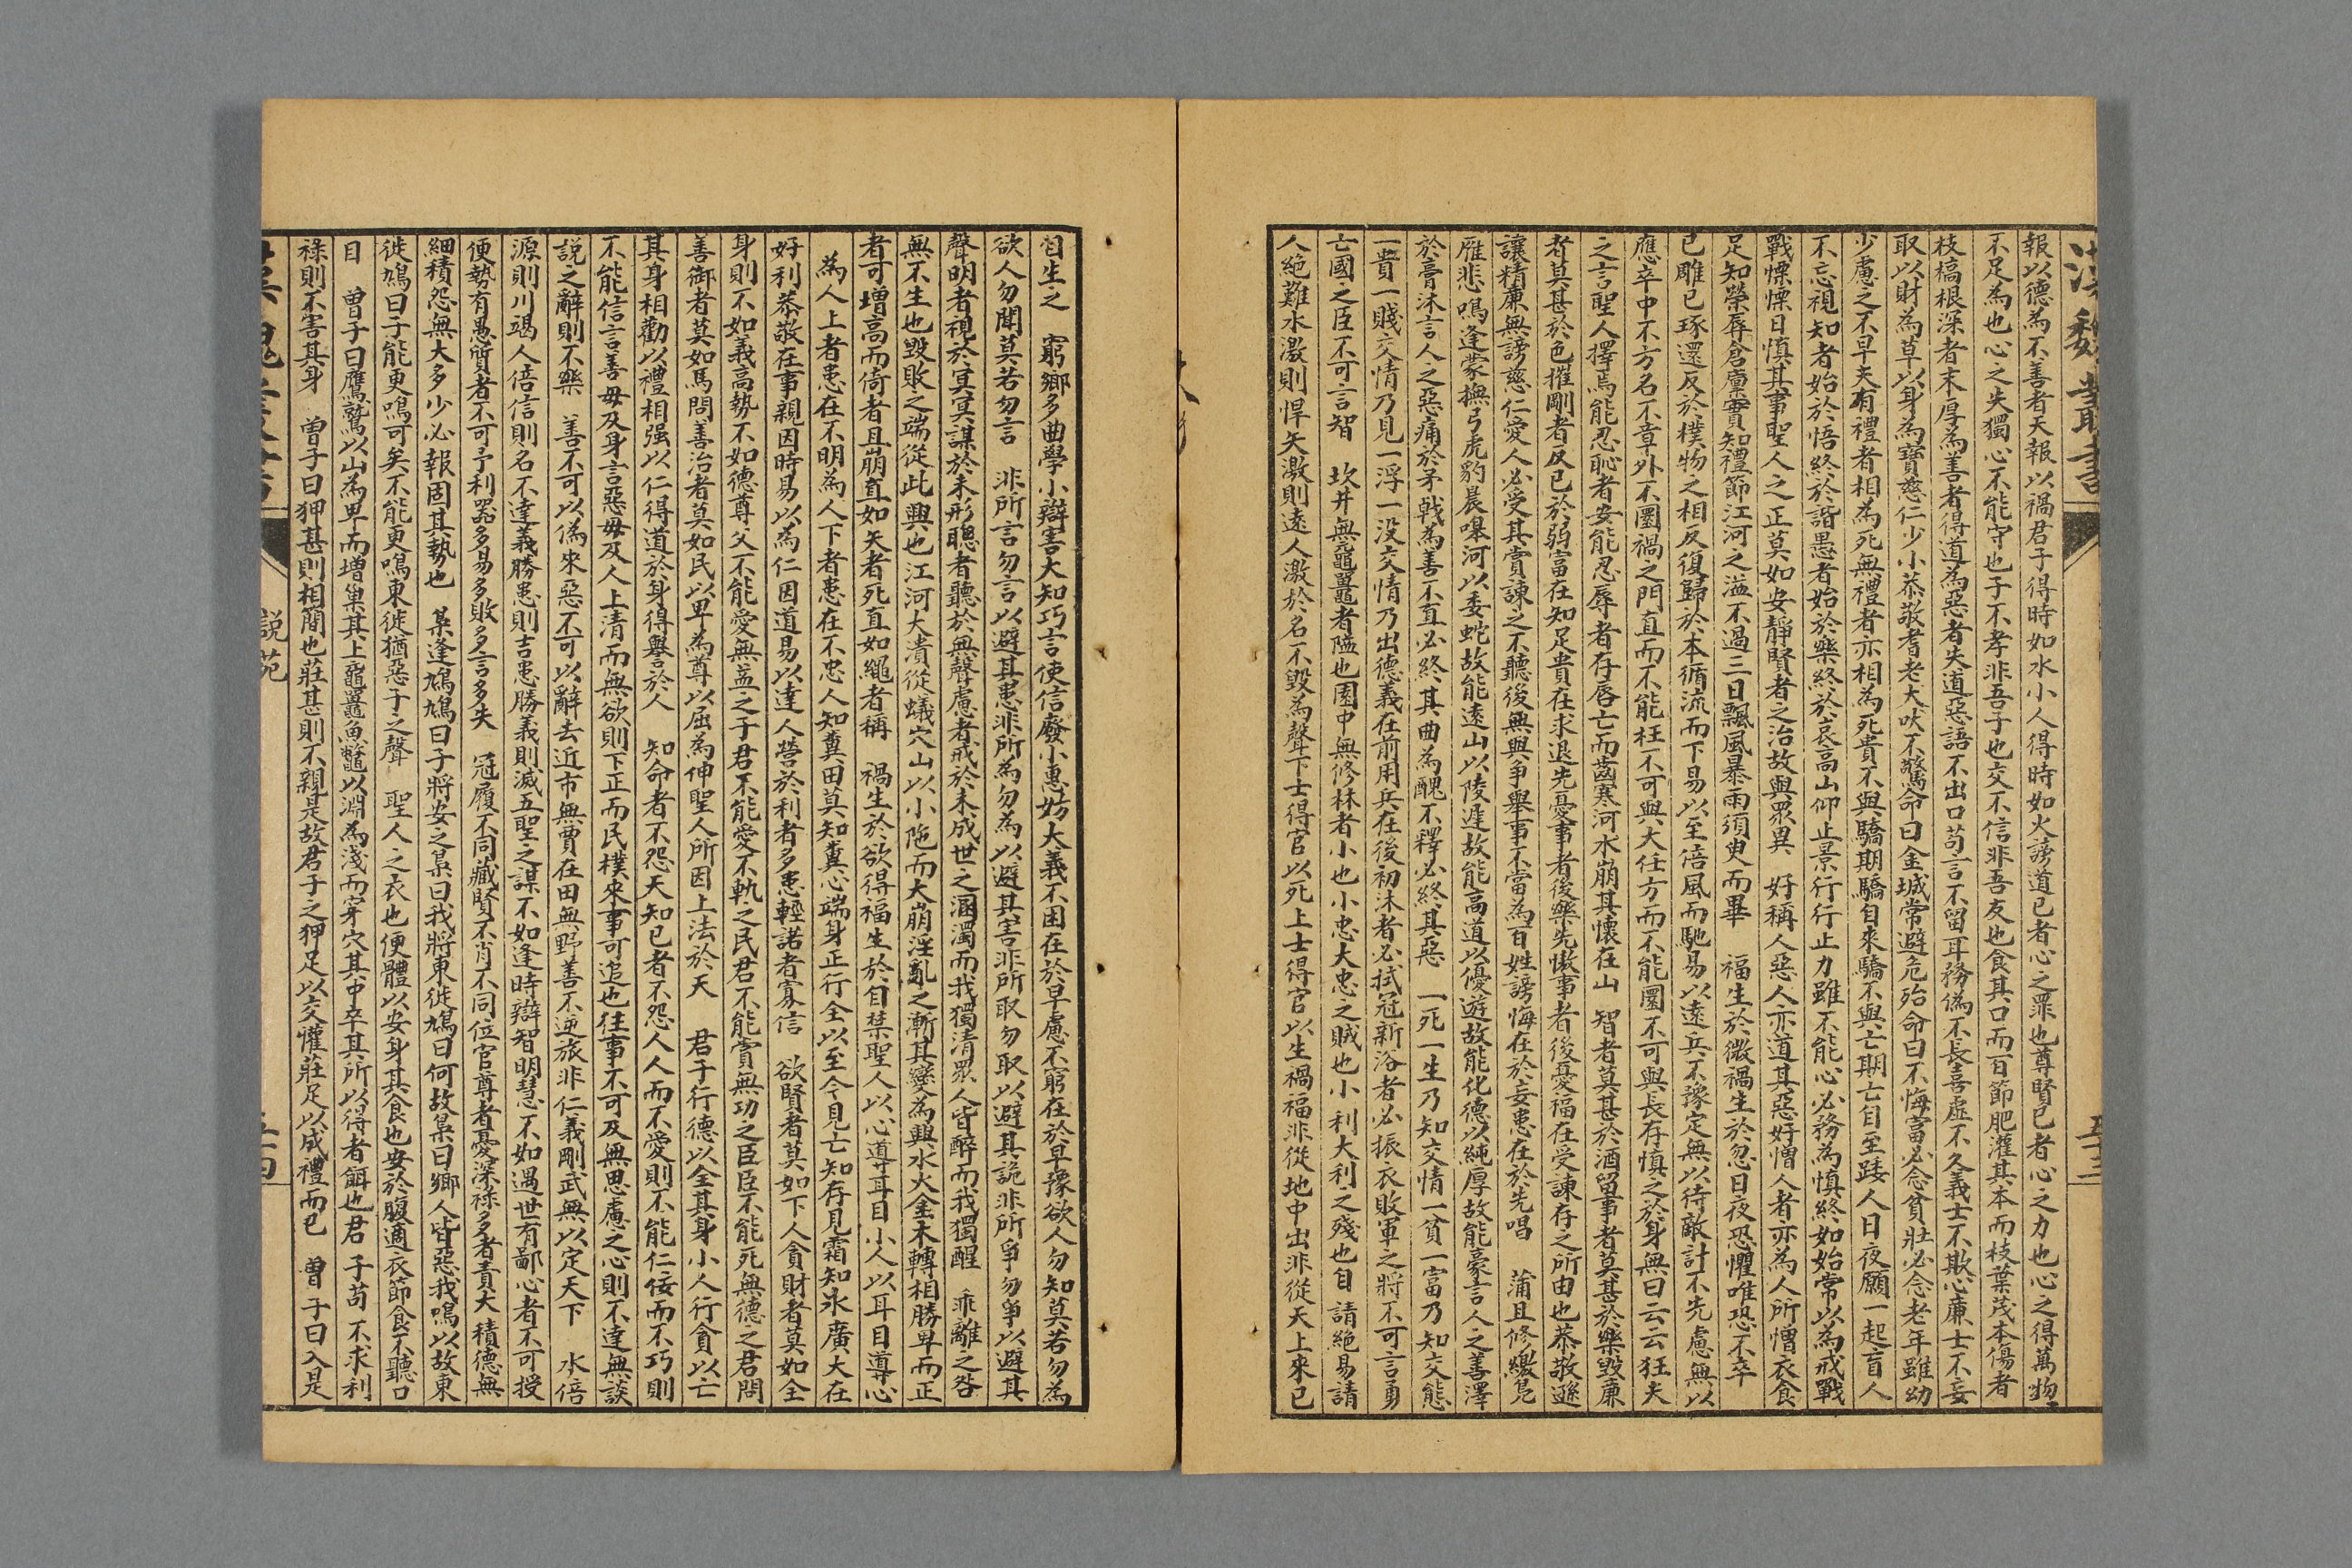 漢魏叢書
五十三
報以德為不善者天報以禍君子得時如水小人得時如火謗道己者心之罪也尊賢己者心之力也心之得萬物
不足為也心之失獨心不能守也子不孝非吾子也交不信非吾友也食其口而百節肥灌其本而枝葉茂本傷者
枝槁根深者末厚為善者得道為惡者失道惡語不出口苟言不留耳務偽不長喜虛不久義士不欺心廉士不妄
取以財為草以身為寶慈仁少小恭敬耆老犬吠不驚命曰金城常避危殆命曰不悔富必念貧壯必念老年雖幼
少慮之不早夫有禮者相為死無禮者亦相為死貴不與驕期驕自來驕不與亡期亡自至踒人日夜願一起盲人
不忘視知者始於悟終於諧愚者始於樂終於哀高山仰止景行行止力雖不能心必務為慎終如始常以為戒戰
戰慄慄日慎其事聖人之正莫如安靜賢者之治故與眾異　好稱人惡人亦道其惡好憎人者亦為人所憎衣食
足知榮辱倉廩實知禮節江河之溢不過三日飄風暴雨須臾而畢　福生於微禍生於忽日夜恐懼唯恐不卒
已雕已琢還反於樸物之相反復歸於本循流而下易以至倍風而馳易以遠兵不豫定無以待敵計不先慮無以
應卒中不方名不章外不圜禍之門直而不能枉不可與大任方而不能圜不可與長存慎之於身無曰云云狂夫
之言聖人擇焉能忍恥者安能忍辱者存唇亡而齒寒河水崩其懷在山　智者莫甚於酒留事者莫甚於樂毀廉
者莫甚於色摧剛者反己於弱富在知足貴在求退先憂事者後樂先慠事者後憂福在受諫存之所由也恭敬遜
讓精廉無謗慈仁愛人必受其賞諫之不聽後無與爭舉事不當為百姓謗悔在於妄患在於先唱　蒲且修繳鳧
雁悲鳴逢蒙撫弓虎豹晨嘷河以委蛇故能遠山以陵遲故能高道以優遊故能化德以純厚故能豪言人之善澤
於膏沐言人之惡痛於矛戟為善不直必終其曲為醜不釋必終其惡　一死一生乃知交情一貧一富乃知交態
一貴一賤交情乃見一浮一没交情乃出德義在前用兵在後初沐者必拭冠新浴者必振衣敗軍之將不可言勇
亡國之臣不可言智　坎井無黿鼉者隘也園中無修林者小也小忠大忠之賊也小利大利之殘也自請絕易請
人絶難水激則悍矢激則遠人激於名不毀為聲下士得官以死上士得官以生禍福非從地中出非從天上來己
自生之　窮鄉多曲學小辯害大知巧言使信廢小惠妨大義不困在於早慮不窮在於早豫欲人勿知莫若勿為
欲人勿聞莫若勿言　非所言勿言以避其患非所為勿為以避其害非所取勿取以避其詭非所爭勿爭以避其
聲明者視於冥冥謀於未形聰者聽於無聲慮者戒於未成世之溷濁而我獨清眾人皆醉而我獨醒　乖離之咎
無不生也毀敗之端從此興也江河大潰從蟻穴山以小陁而大崩淫亂之漸其變為興水火金木轉相勝卑而正
者可增高而倚者且崩直如矢者死直如繩者稱　禍生於欲得福生於自禁聖人以心導耳目小人以耳目導心
為人上者患在不明為人下者患在不忠人知糞田莫知糞心端身正行全以至今見亡知存見霜知氷廣大在
好利恭敬在事親因時易以為仁因道易以達人營於利者多患輕諾者寡信　欲賢者莫如下人貪財者莫如全
身則不如義高勢不如德尊父不能愛無益之子君不能愛不軌之民君不能賞無功之臣臣不能死無德之君問
善御者莫如馬問善治者莫如民以卑為尊以屈為伸聖人所因上法於天　君子行德以全其身小人行貪以亡
其身相勸以禮相强以仁得道於身得譽於人　知命者不怨天知己者不怨人人而不愛則不能仁佞而不巧則
不能信言善毋及身言惡毋及人上清而無欲則下正而民樸來事可追也往事不可及無思慮之心則不達無談
說之辭則不樂　善不可以偽來惡不可以辭去近市無賈在田無野善不逆旅非仁義剛武無以定天下　水倍
源則川竭人倍信則名不達義勝患則吉患勝義則滅五聖之謀不如逢時辯智明慧不如遇世有鄙心者不可授
便勢有愚質者不可予利器多易多敗多言多失　冠履不同藏賢不肖不同位官尊者憂深祿多者責大積德無
細積怨無大多少必報固其勢也　梟逢鳩鳩曰子將安之梟曰我將東徙鳩曰何故梟曰鄉人皆惡我鳴以故東
徙鳩曰子能更鳴可矣不能更鳴東徙猶惡子之聲　聖人之衣也便體以安身其食也安於腹適衣節食不聽口
目　曾子曰鷹鷲以山為卑而增巢其上黿鼉魚鼈以淵為淺而穿穴其中卒其所以得者餌也君子苟不求利
祿則不害其身　曾子曰狎甚則相簡也莊甚則不親是故君子之狎足以交懽莊足以成禮而已　曾子曰入是
漢魏叢書
說苑
五十四